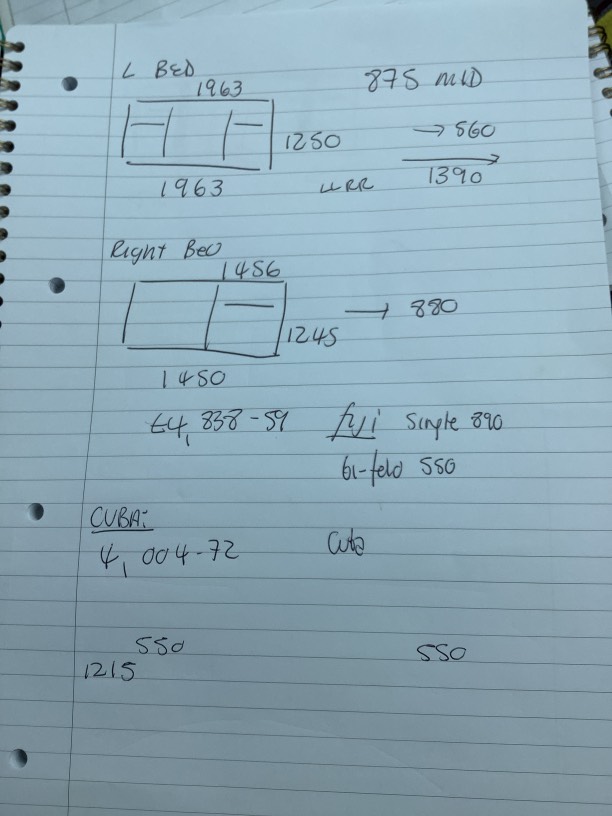 L BED
1963 875 MID
1250 → 560
1963 LLRR 1390
Right Bed
1456
1245 → 880
1450
£4,838-59 fyi Single 890
bi-fold 550
CUBA:
4,004-72 Cuba
550 550
1215